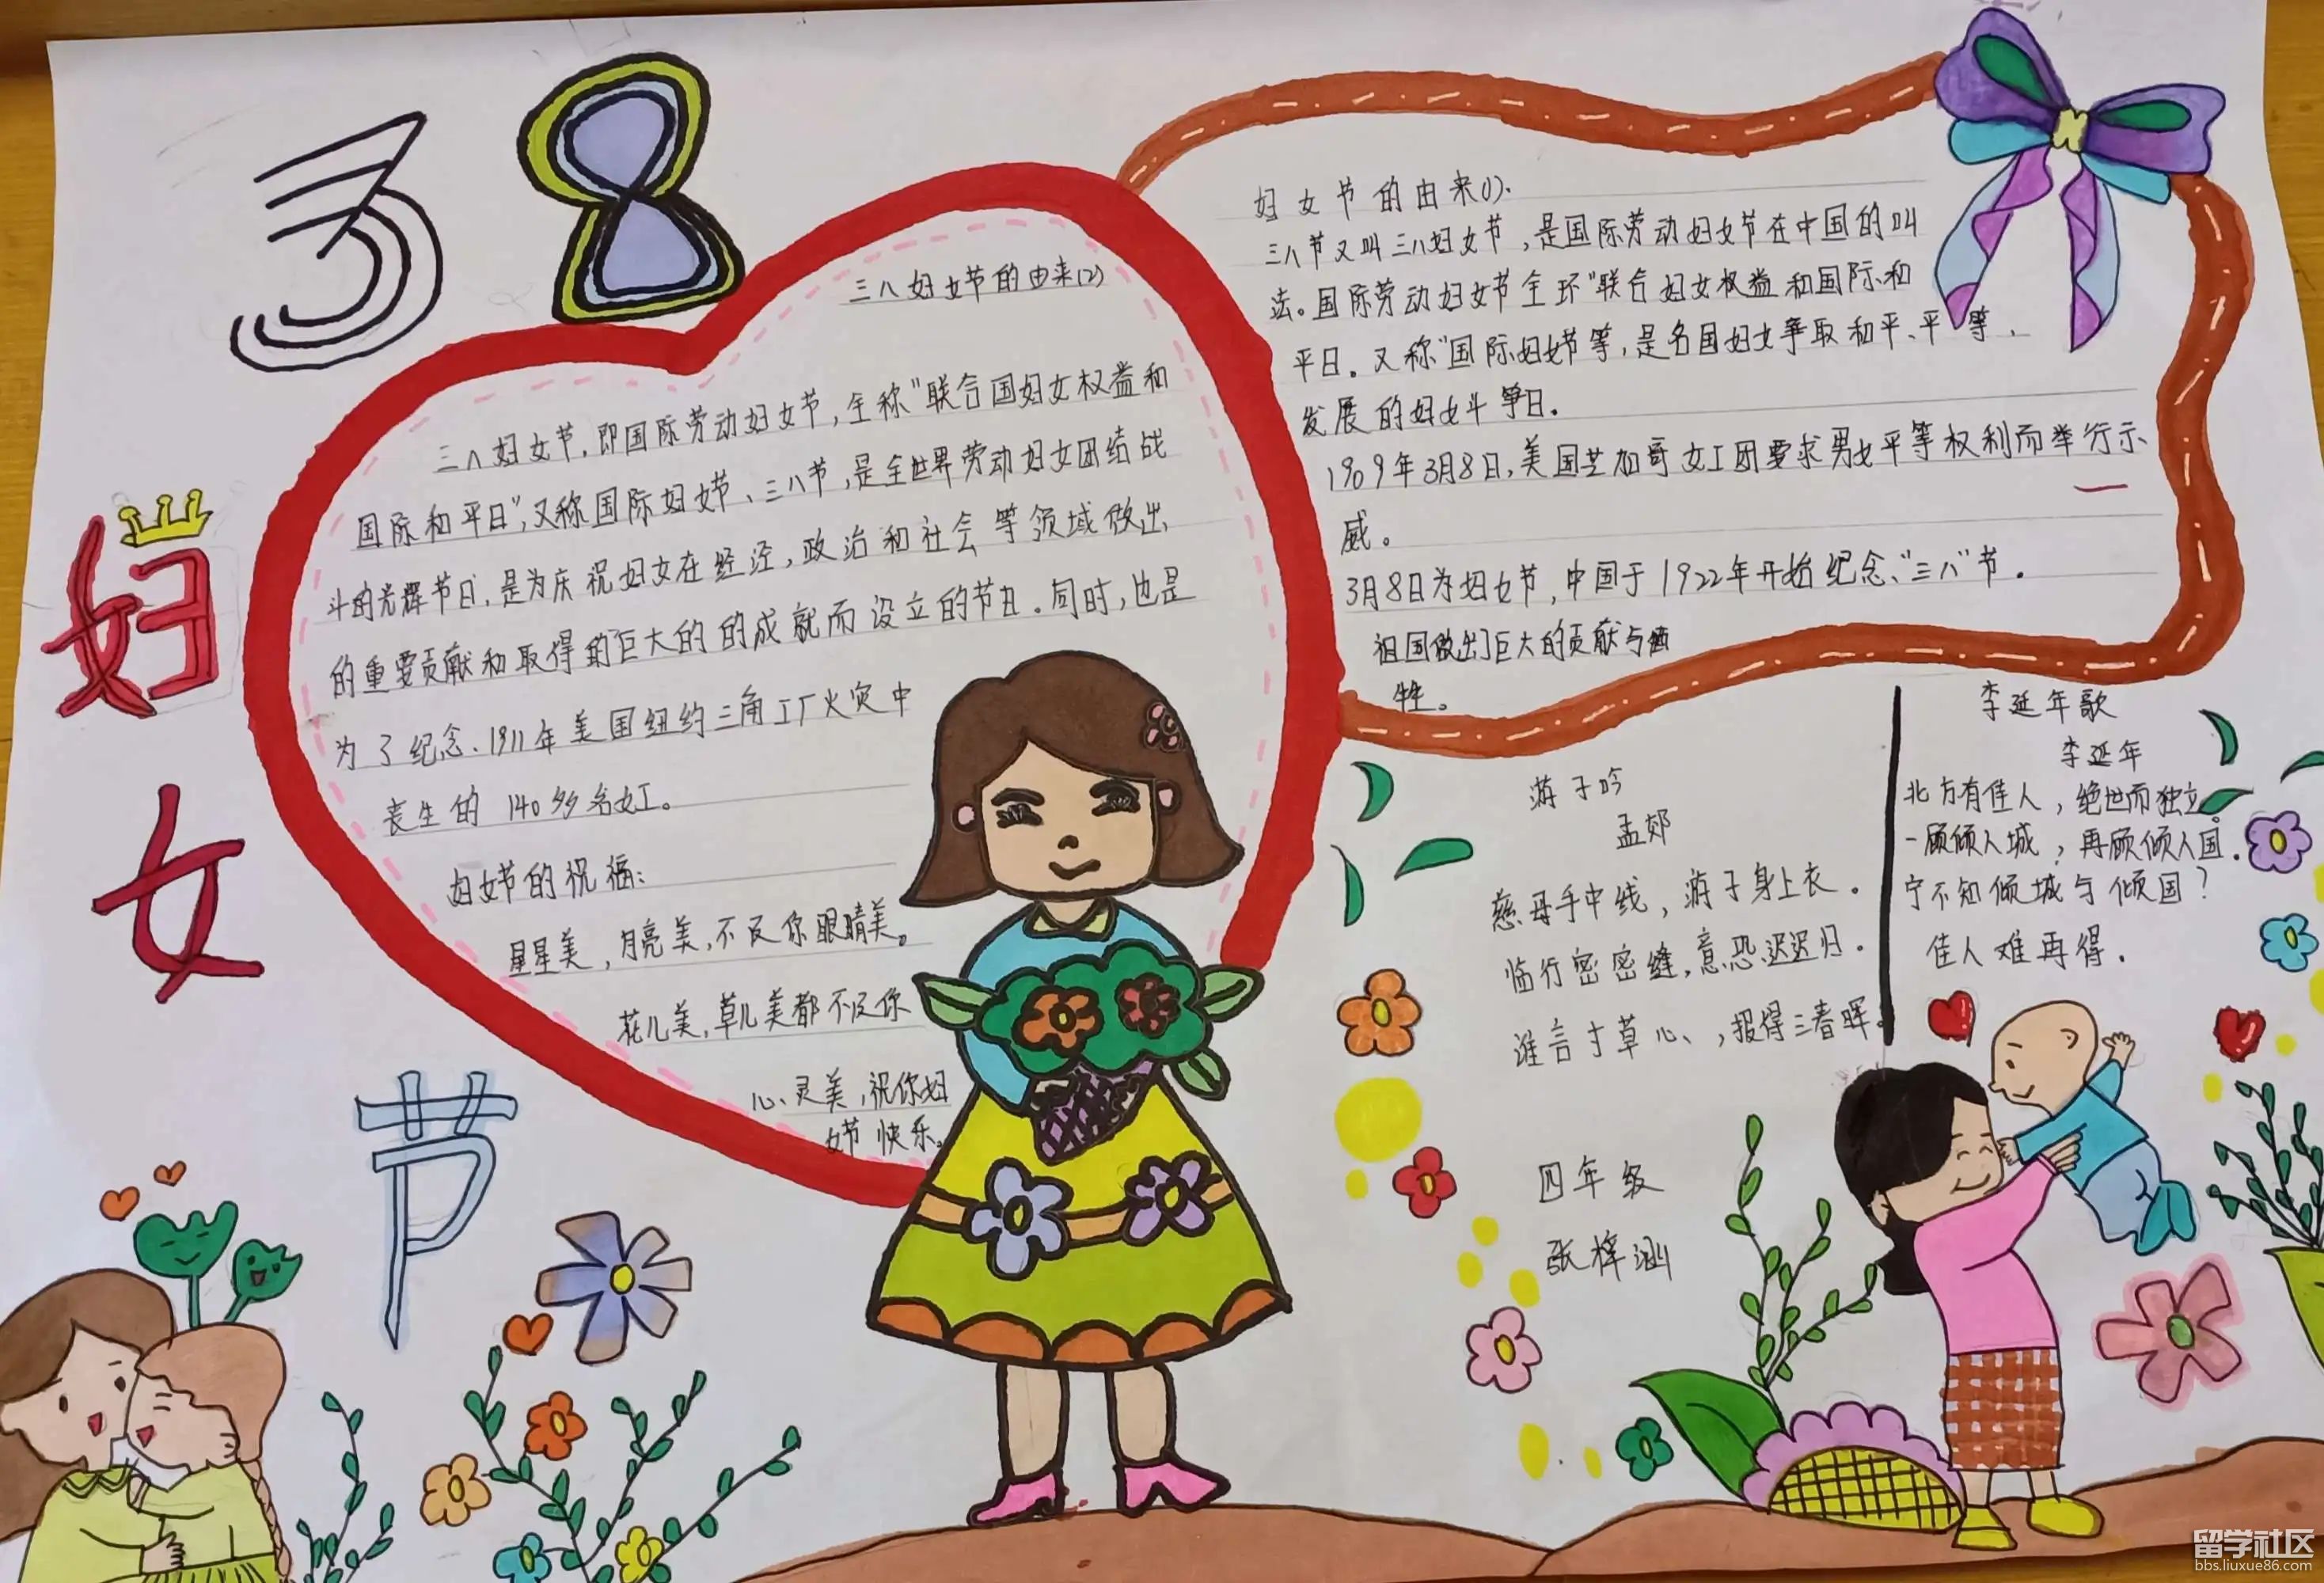 38
妇
女
节
三八妇女节的由来(2)
三八妇女节,即国际劳动妇女节,全称"联合国妇女权益和
国际和平日",又称国际妇女节、三八节,是全世界劳动妇女团结战
斗的光辉节日,是为庆祝妇女在经济,政治和社会等领域做出
的重要贡献和取得的巨大的的成就而设立的节日.同时,也是
为了纪念、1911年美国纽约三角工厂火灾中
丧生的140多名女工。
妇女节的祝福:
星星美,月亮美,不及你眼睛美。
花儿美,草儿美都不及你
心、灵美,祝你妇
女节快乐。
妇女节的由来(1).
三八节又叫三八妇女节,是国际劳动妇女节在中国的叫
法。国际劳动妇女节全环"联合妇女权益和国际和
平日。又称"国际妇女节等,是各国妇女争取和平、平等、
发展的妇女斗争日.
1909年3月8日,美国芝加哥女工团要求男女平等权利而举行示
威。
3月8日为妇女节,中国于1922年开始纪念、"三八"节.
祖国做出了巨大的贡献与牺
牲。
游子吟
孟郊
慈母手中线,游子身上衣.
临行密密缝,意恐迟迟归.
谁言寸草心、,报得三春晖。
李延年歌
李延年
北方有佳人,绝世而独立。
一顾倾人城,再顾倾人国.
宁不知倾城与倾国?
佳人难再得.
四年级
张梓涵
留学社区
bbs.liuxue86.com